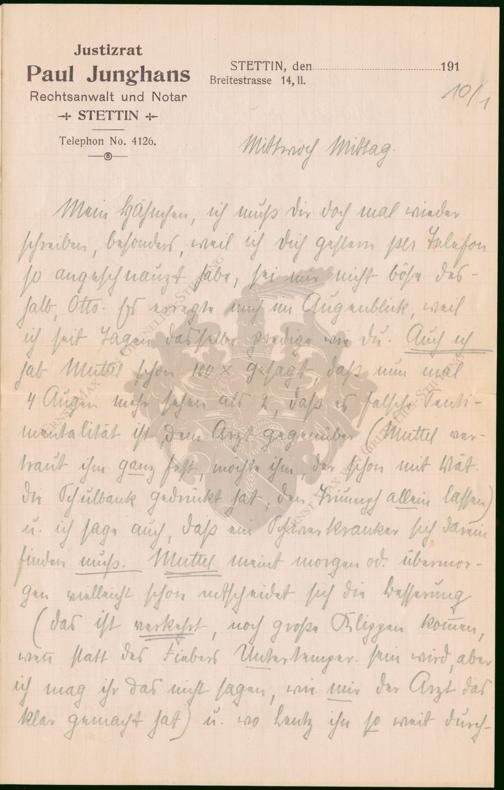 Justizrat
Paul Junghans
Rechtsanwalt und Notar
STETTIN
Telephon No. 4126.
STETTIN, den 191
Breitestrasse 14, II.
10/1
Mittwoch Mittag.
Mein Hähnchen, ich muß dir doch mal wieder
schreiben, besonders, weil ich dich gestern per Telefon
so angeschnauzt habe, sei mir nicht böse des-
halb, Otto. Es erregte mich im Augenblick, weil
ich seit Tagen dasselbe predige wie du. Auch ich
hab Muttel schon 100 x gesagt daß nun mal
4 Augen mehr sehen als 2, daß es falsche Senti-
mentalität ist dem Arzt gegenüber (Muttel ver-
traut ihm ganz fest, möchte ihm der schon mit Vat.
die Schulbank gedrückt hat, den Triumpf allein lassen)
u. ich sage auch, daß ein Schwerkranker sich darein
finden muß. Muttel meint morgen od. übermor-
gen vielleicht schon entscheidet sich die Besserung
(das ist verkehrt, noch große Klippen kommen,
wenn statt des Fiebers Untertemper. sein wird aber
ich mag ihr das nicht sagen, wie mir der Arzt das
klar gemacht hat) u. wo Lentz ihn so weit durch-